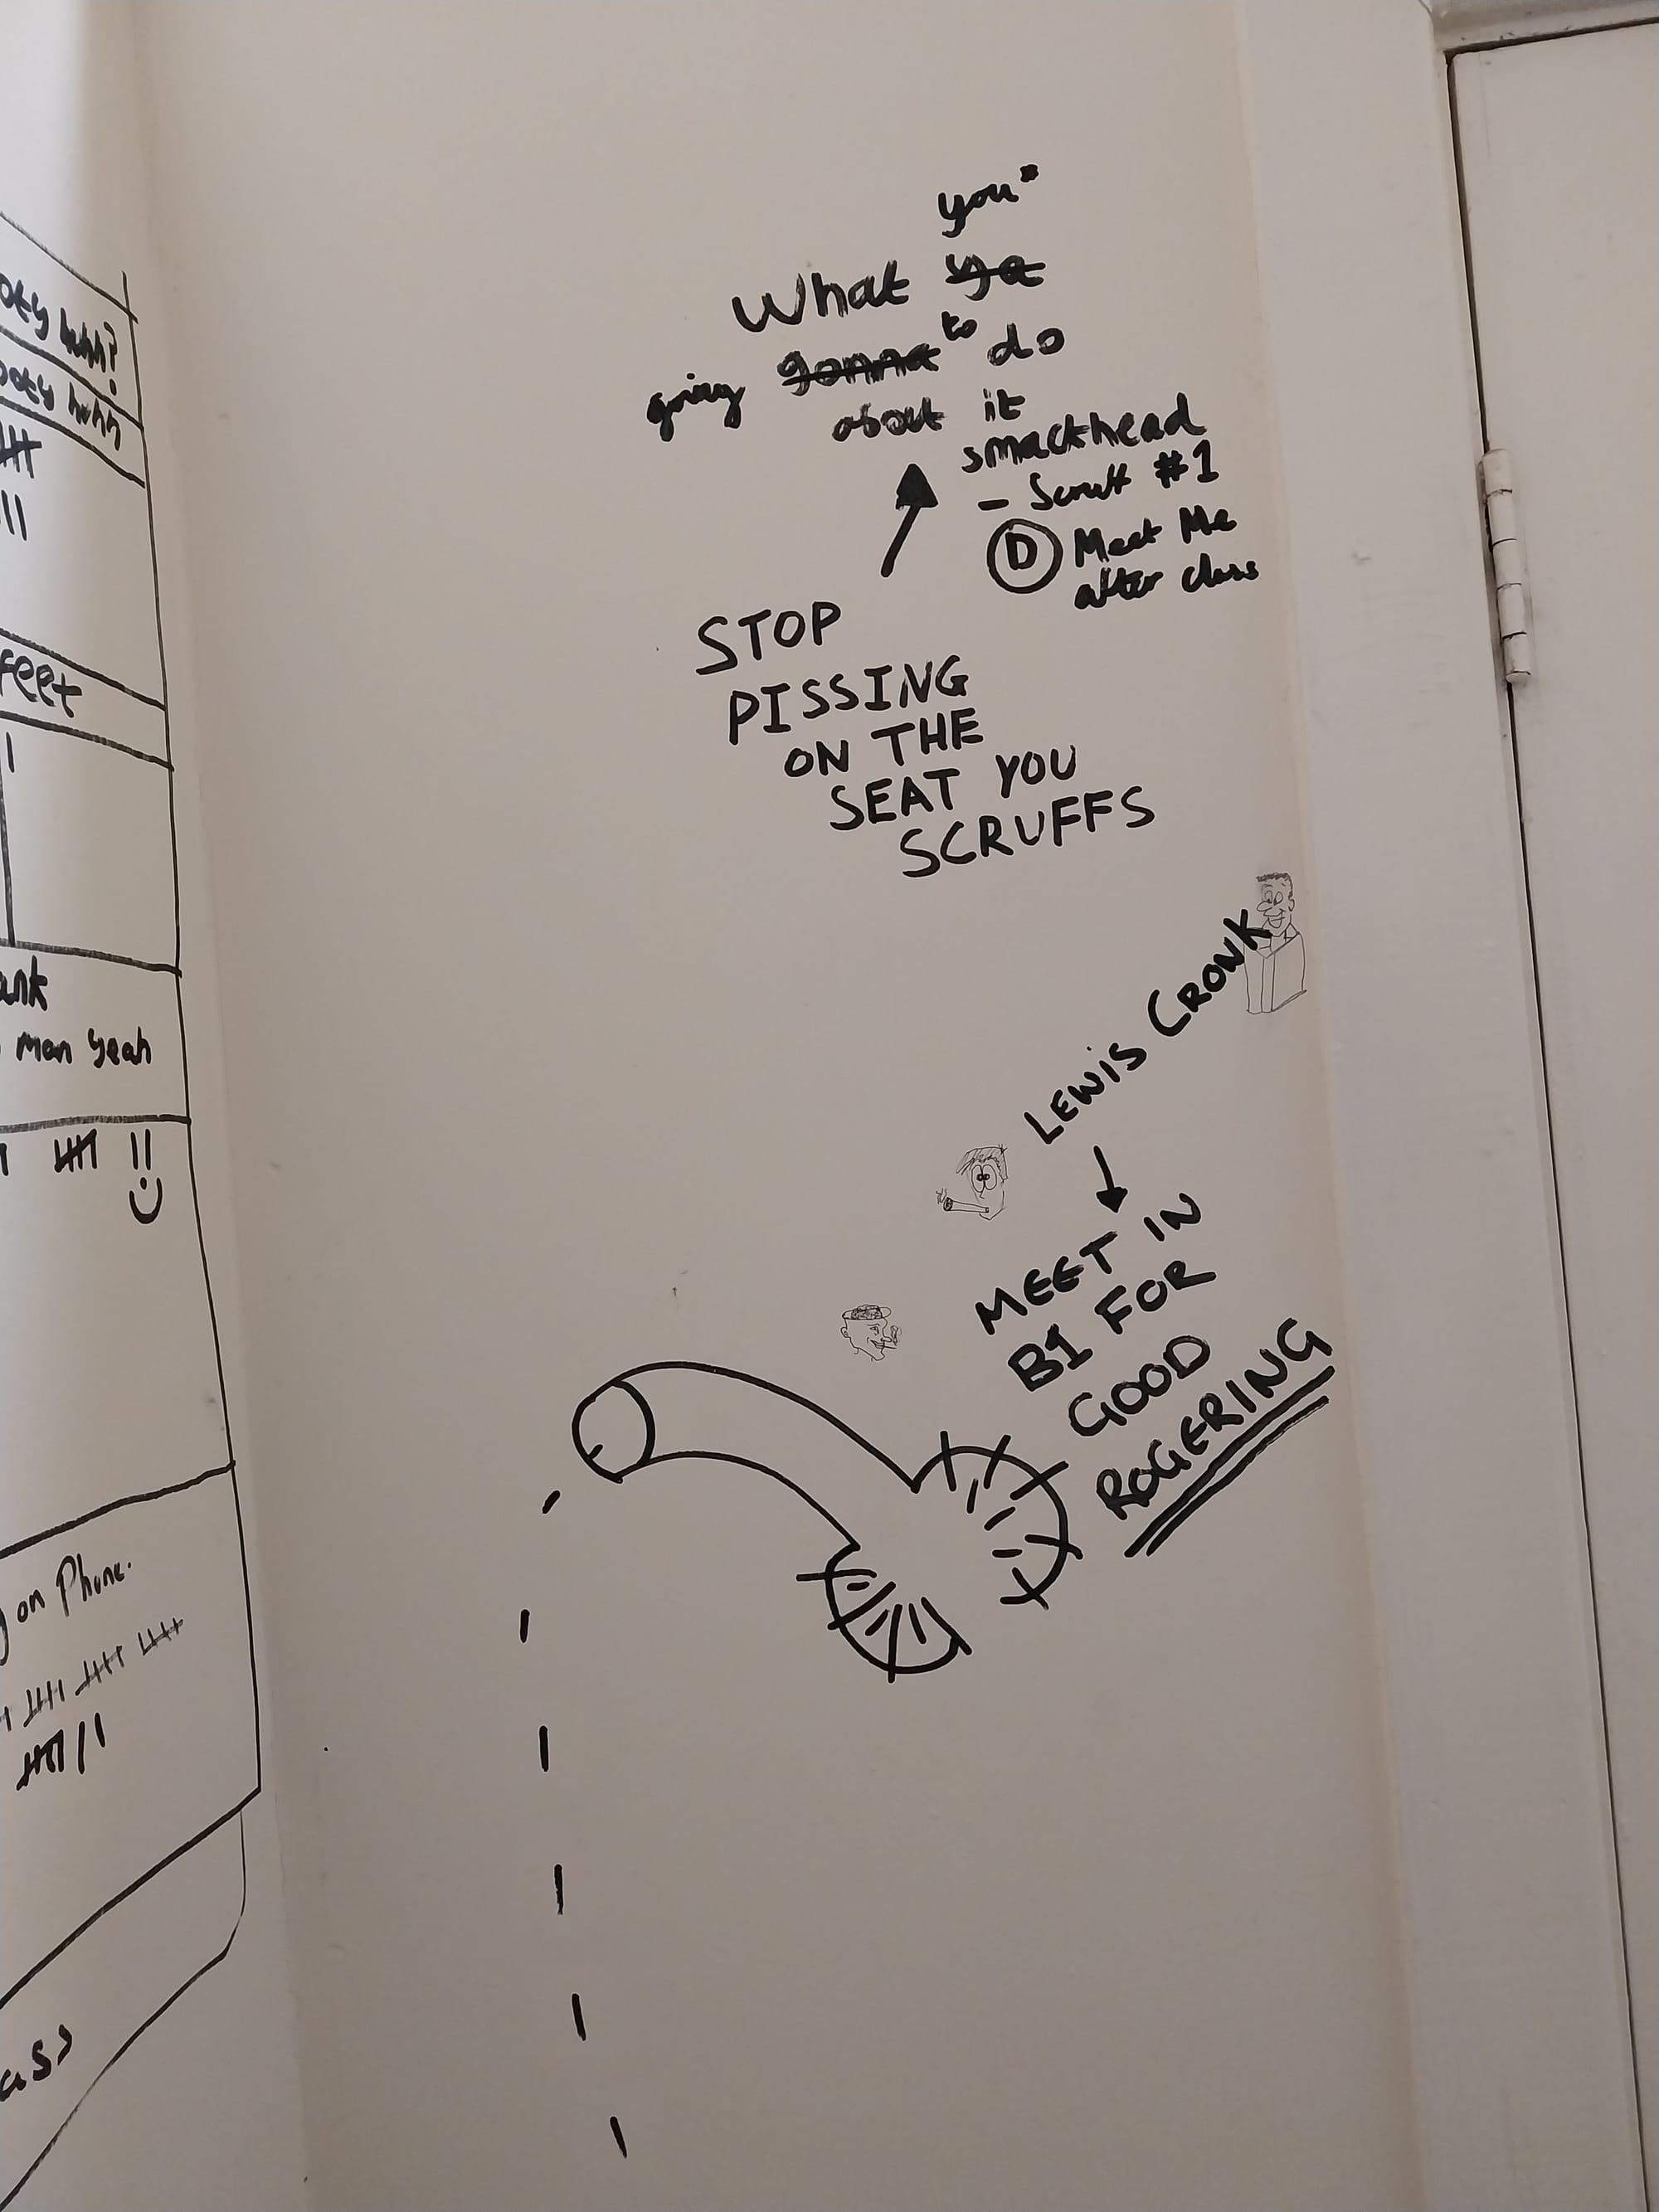 ooty huhh?
ooty huhh
feet
ank
man yeah
on Phone.
ass
you*
What ya
going gonna to do
about it
smackhead
- Scruff #1
D Meet Me
after class
STOP
PISSING
ON THE
SEAT YOU
SCRUFFS
LEWIS CRONK
MEET IN
B1 FOR
GOOD
ROGERING